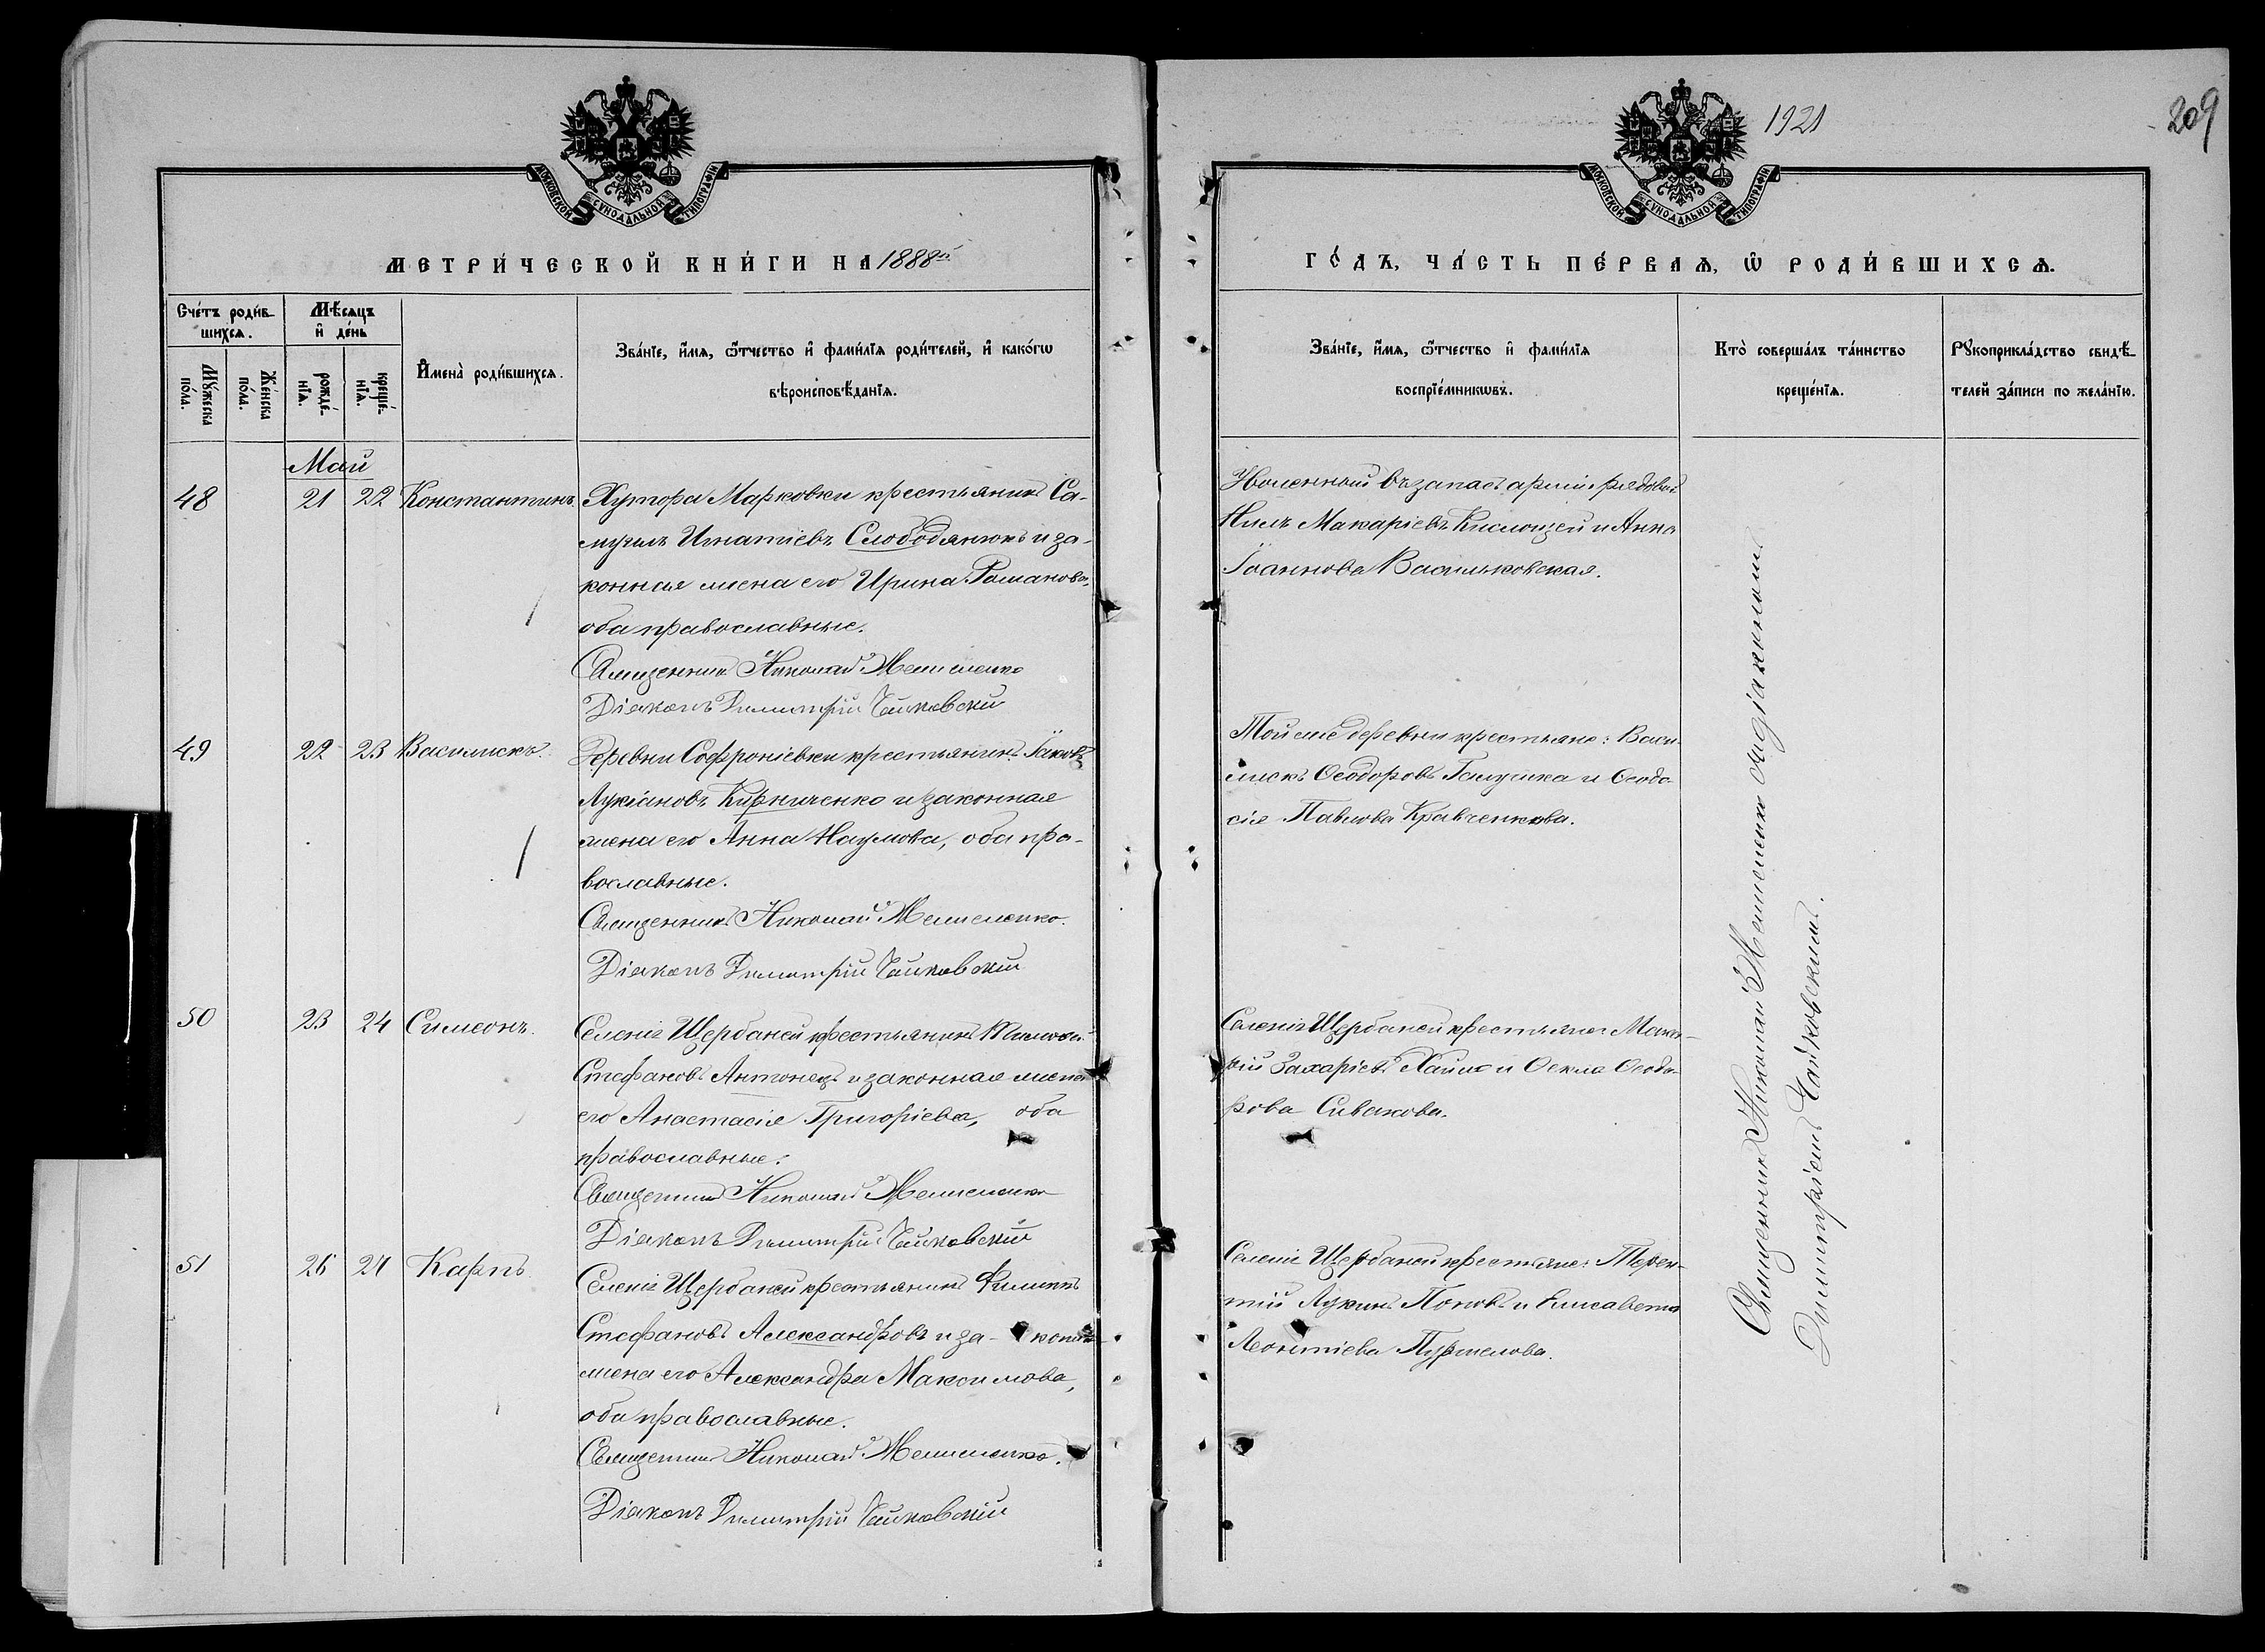 1921
209
МОСКОВСКОЙ СѴНОДАЛЬНОЙ ТИПОГРАФІИ
МОСКОВСКОЙ СѴНОДАЛЬНОЙ ТИПОГРАФІИ
МЕТРИ́ЧЕСКОЙ КНИ́ГИ НА 1888й
ГО́ДЪ, ЧА́СТЬ ПЕ́РВАѦ, Ѡ РОДИ́ВШИХСѦ.
Сче́тъ роди́в-
шихсѧ.
Мѣ́сѧцъ
и де́нь
Мꙋ́жеска
по́ла.
Же́нска
по́ла.
рожде́-
нїѧ.
креще́-
нїѧ.
И҆мена̀ роди́вшихсѧ.
Зва́нїе, и҆́мѧ, ѻ҆́тчество и҆ фами́лїѧ роди́телей, и҆ како́гѡ
вѣроисповѣ́данїѧ.
Зва́нїе, и҆́мѧ, ѻ҆́тчество и҆ фами́лїѧ
воспрїе́мникѡвъ.
Кто̀ соверша́лъ та́инство
креще́нїѧ.
Рꙋкоприкла́дство свидѣ́-
телей за́писи по жела́нїю.
Май
48 21 22 Константинъ.
Хутора Марковки крестьянинъ Са-
муилъ Игнатіевъ Слободянюкъ и за-
конная жена его Ирина Романова,
оба православные.
Священникъ Николай
Діаконъ Димитрій Чайковскій
Уволенный въ запасъ арміи рядовой
Нилъ Макаріевъ Кислощей и Анна
Іоаннова Васильковская.
49 22 23 Василискъ.
Деревни Софроніевки крестьянинъ Іаковъ
Лукіановъ Кирниченко и законная
жена его Анна Наумова, оба пра-
вославные.
Священникъ Николай
Діаконъ Димитрій Чайковскій
Той же деревни крестьяне: Васи-
лискъ Ѳеодоровъ Галушка и Ѳеодо-
сія Павлова Кравченкова.
50 23 24 Симеонъ.
Селенія Щербаней крестьянинъ Тимофей
Стефановъ Антонецъ и законная жена
его Анастасія Григоріева, оба
православные.
Священникъ Николай
Діаконъ Димитрій Чайковскій
Селенія Щербаней крестьяне: Мака-
рій Захаріевъ и Ѳекла Ѳеодо-
рова Сивакова.
51 26 24 Карпъ
Селенія Щербаней крестьянинъ Филиппъ
Стефановъ Александровъ и законная
жена его Александра Максимова,
оба православные.
Священникъ Николай
Діаконъ Димитрій Чайковскій
Селенія Щербаней крестьяне: Терен-
тій Лукинъ Поповъ и Елисавета
Леонтіева
Священникъ Николай съ діакономъ
Димитріемъ Чайковскимъ.